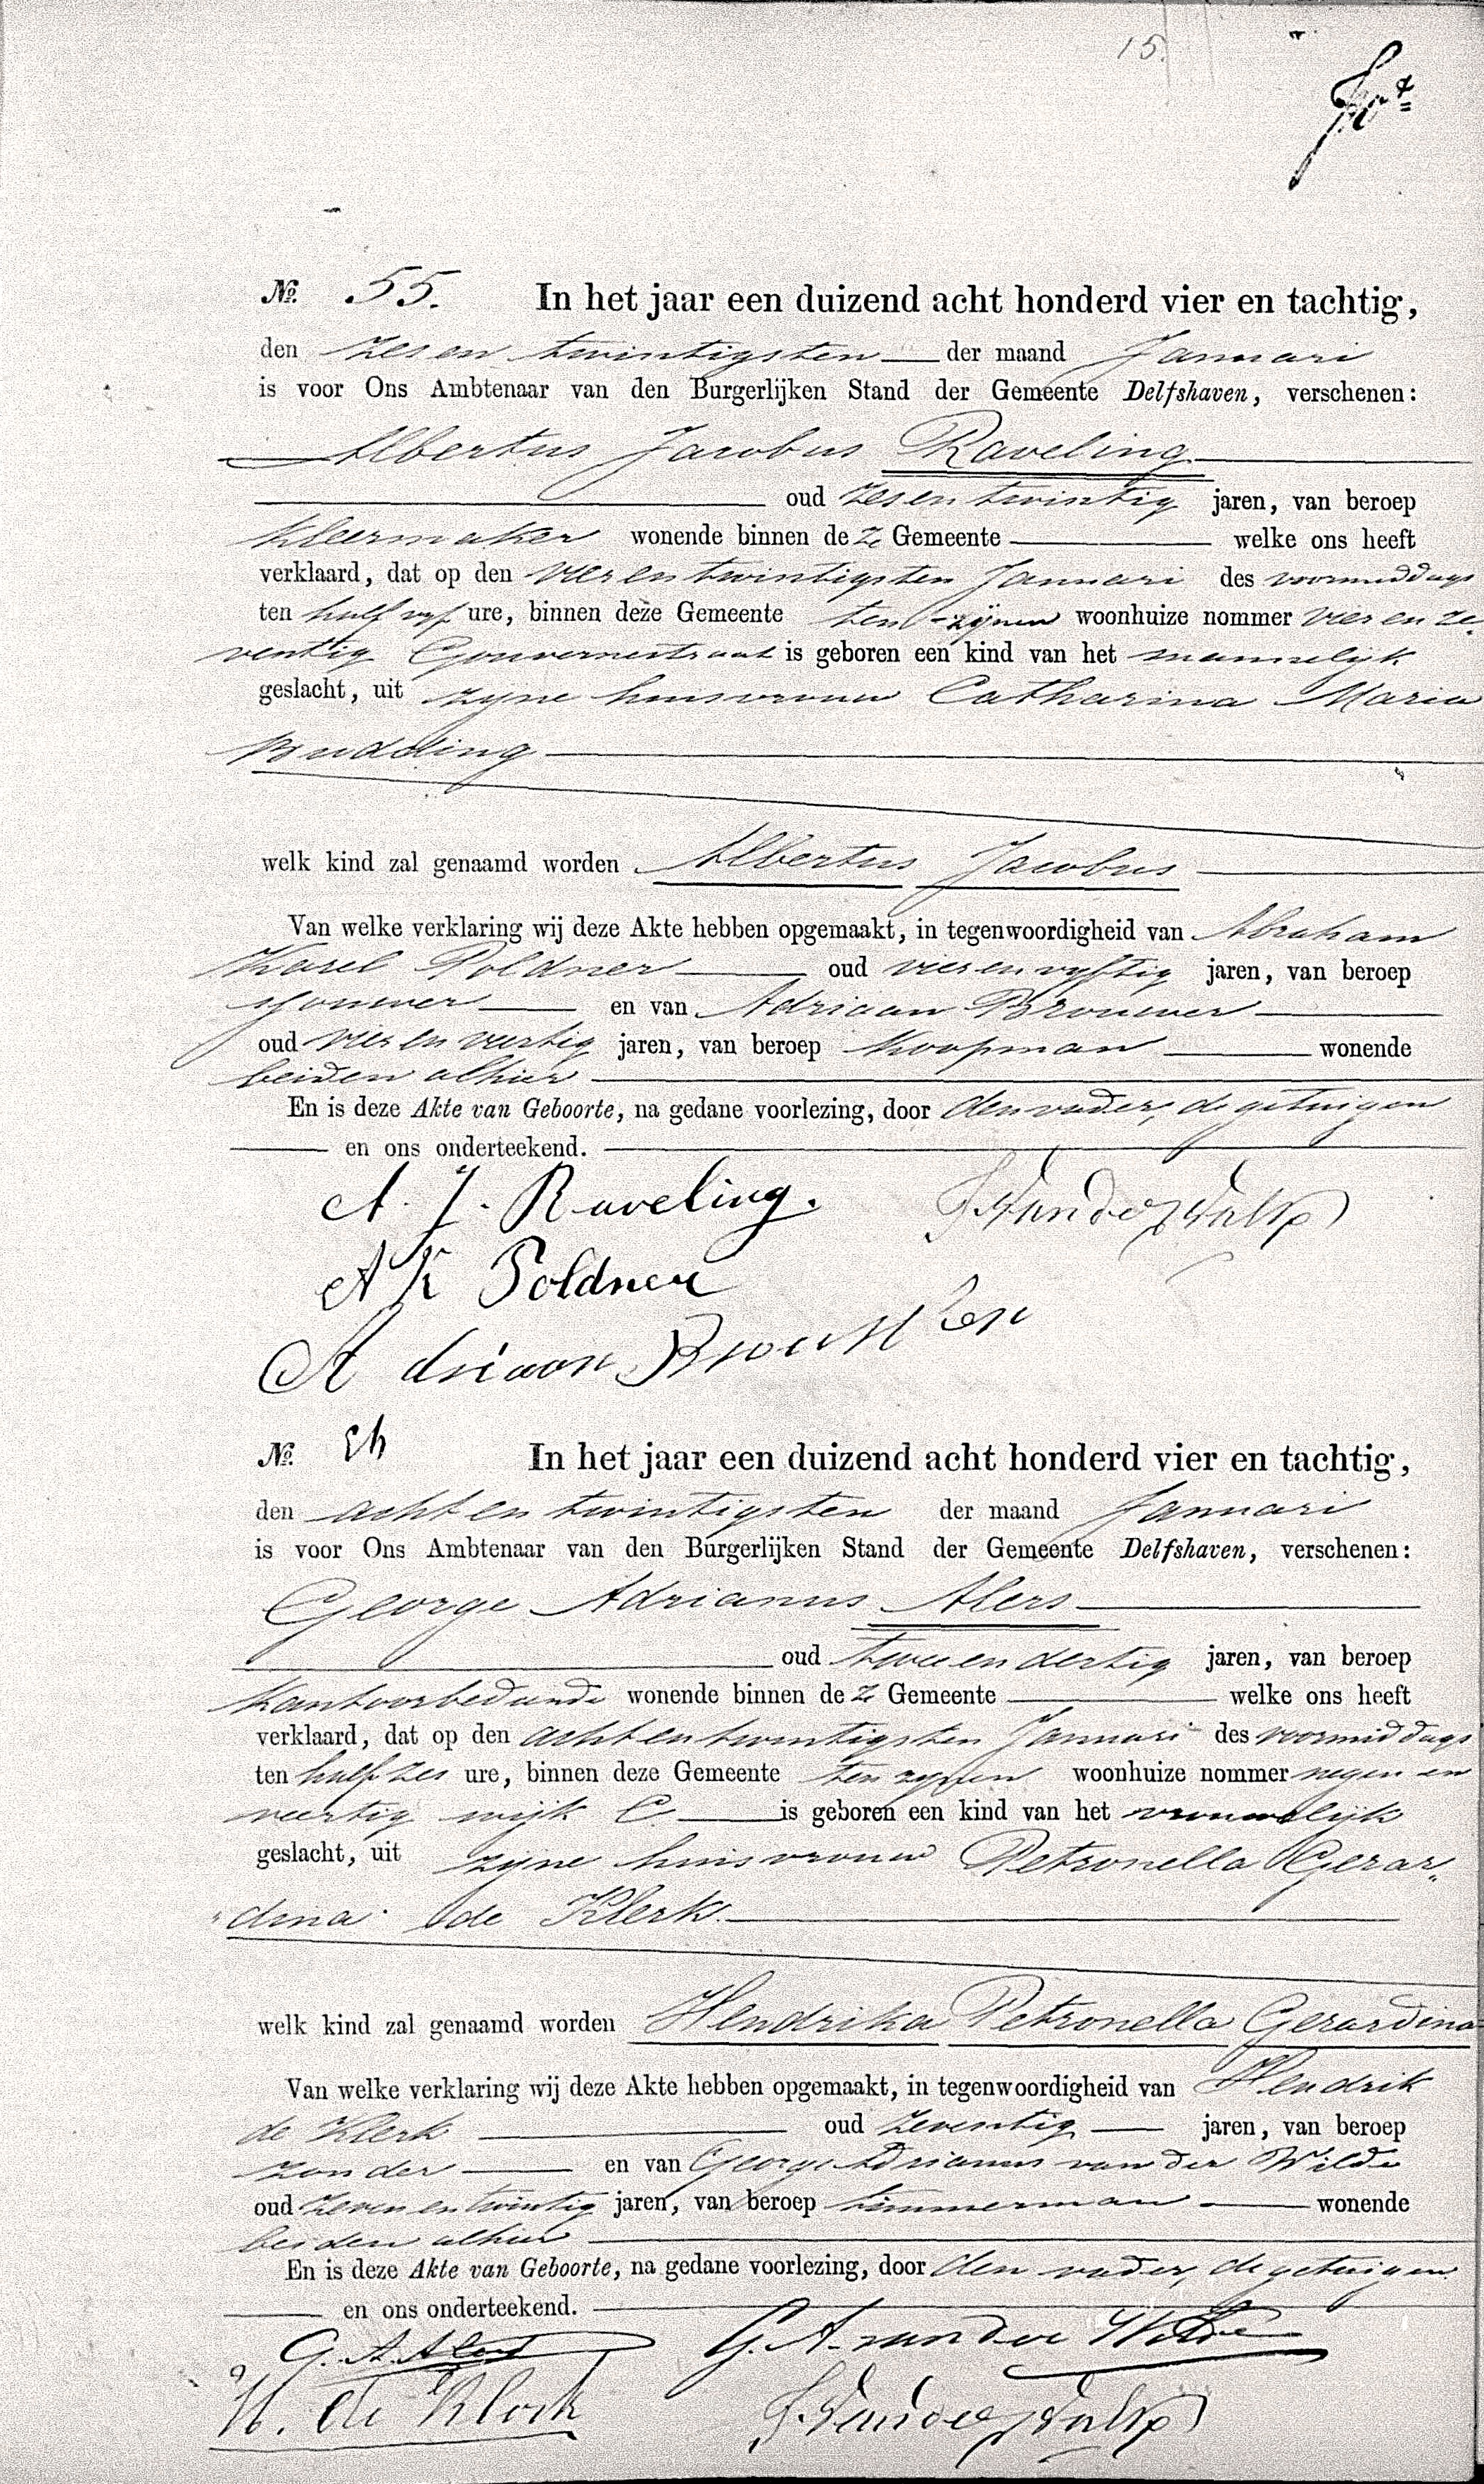 15.
No. 55. In het jaar een duizend acht honderd vier en tachtig,
den zes en twintigsten der maand Januari
is voor Ons Ambtenaar van den Burgerlijken Stand der Gemeente Delfshaven, verschenen:
Albertus Jacobus Raveling
oud zes en twintig jaren, van beroep
kleermaker wonende binnen deze Gemeente welke ons heeft
verklaard, dat op den vier en twintigsten Januari des voormiddags
ten half vyf ure, binnen deze Gemeente ten zijnen woonhuize nommer vier en ze-
ventig Gouvernestraat is geboren een kind van het mannelijk
geslacht, uit zyne huisvrouw Catharina Maria
Budding
welk kind zal genaamd worden Albertus Jacobus
Van welke verklaring wij deze Akte hebben opgemaakt, in tegenwoordigheid van Abraham
Karel Poldner oud vier en vyftig jaren, van beroep
en van Adriaan Brouwer
oud vier en veertig jaren, van beroep koopman wonende
beiden alhier
En is deze Akte van Geboorte, na gedane voorlezing, door den vader, de getuigen
en ons onderteekend.
A. J. Raveling.
A K Poldner
Adriaan Brouwer
No. In het jaar een duizend acht honderd vier en tachtig,
den acht en twintigsten der maand Januari
is voor Ons Ambtenaar van den Burgerlijken Stand der Gemeente Delfshaven, verschenen:
George Adrianus Alers
oud twee en dertig jaren, van beroep
kantoorbediende wonende binnen deze Gemeente welke ons heeft
verklaard, dat op den acht en twintigsten Januari des voormiddags
ten half zes ure, binnen deze Gemeente ten zynen woonhuize nommer negen en
veertig wijk C. is geboren een kind van het vrouwelijk
geslacht, uit zyne huisvrouw Petronella Gerar„
„dina de Klerk
welk kind zal genaamd worden Hendrika Petronella Gerardina
Van welke verklaring wij deze Akte hebben opgemaakt, in tegenwoordigheid van Hendrik
de Klerk oud zeventig jaren, van beroep
zonder en van George Adrianus van der Wilde
oud zeven en twintig jaren, van beroep timmerman wonende
beiden alhier
En is deze Akte van Geboorte, na gedane voorlezing, door den vader, de getuigen
en ons onderteekend.
G. A. Alers G. A. van der Wilde
H. de Klerk